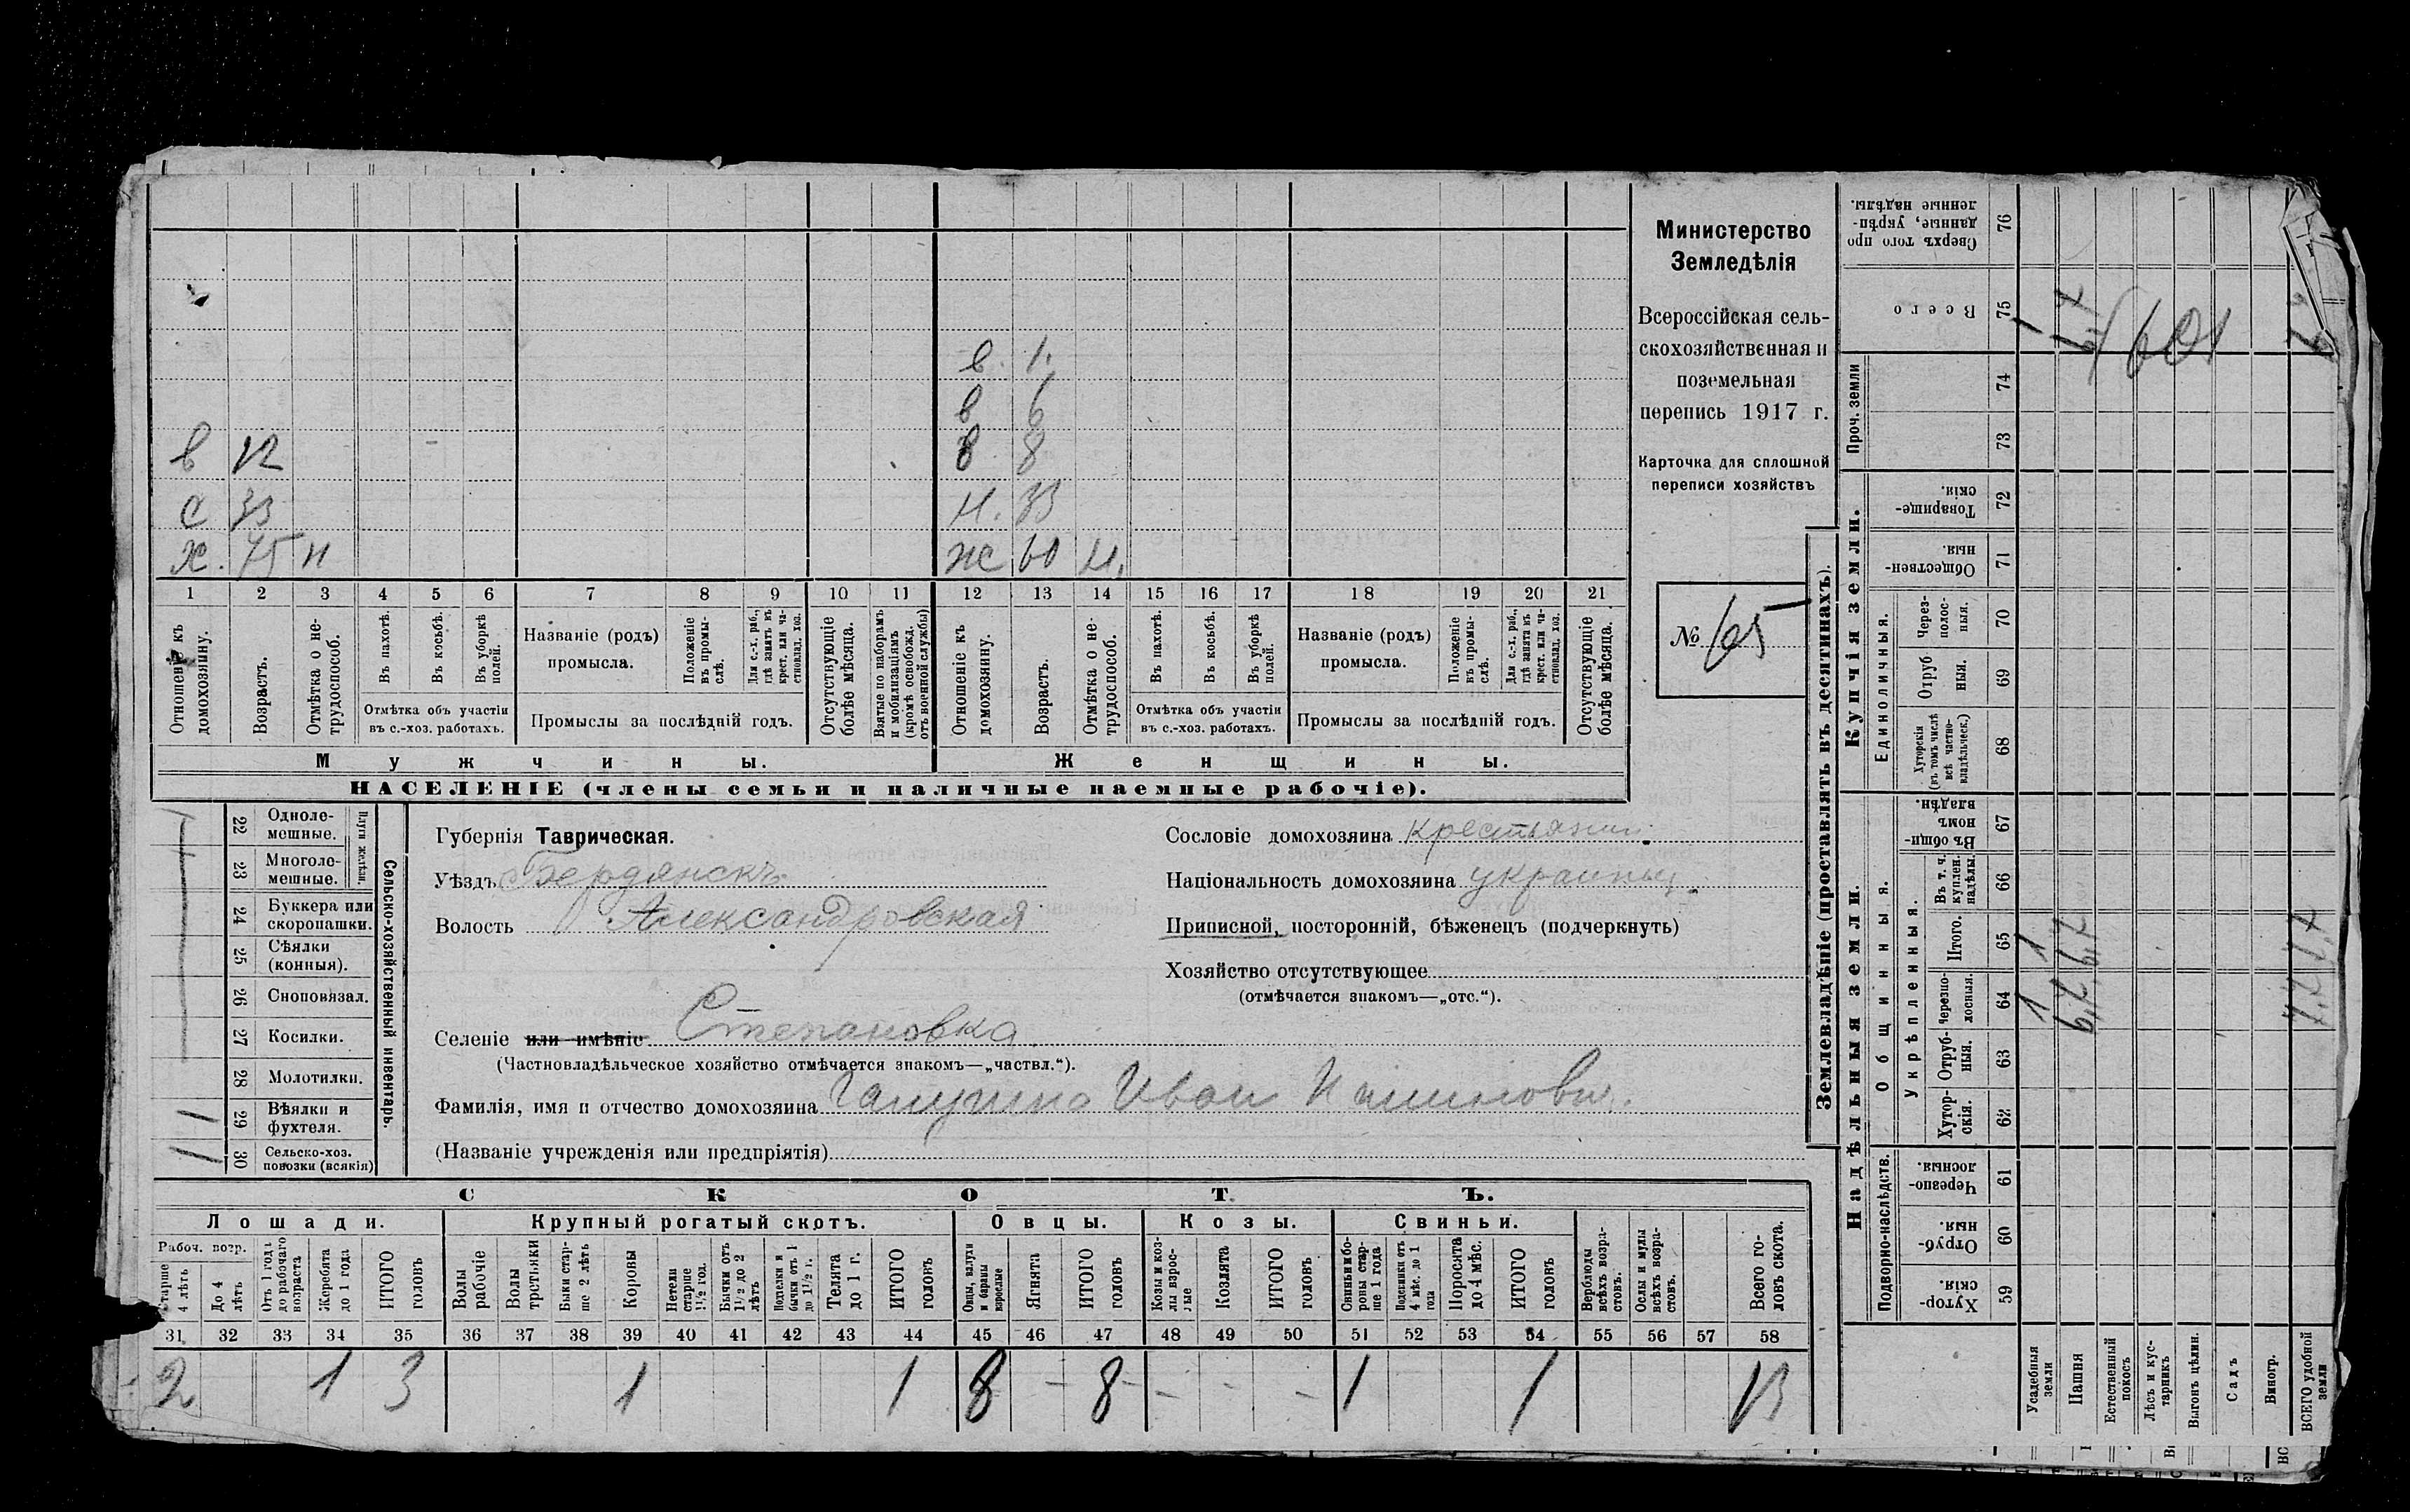 в. 1.
в 6
в 12 в 8
с 33 н. 33
х. 75 н ж 60 н.
1 2 3 4 5 6 7 8 9 10 11 12 13 14 15 16 17 18 19 20 21
Отношеніе къ домохозяину.
Возрастъ.
Отмѣтка о не-трудоспособ.
Въ пахотѣ.
Въ косьбѣ.
Въ уборкѣ полей.
Отмѣтка объ участіи
въ с.-хоз. работахъ.
Названіе (родъ)
промысла.
Положеніе въ промы-слѣ.
Для с.-х. раб., гдѣ занятъ въ крест. или ча-стновлад. хоз.
Промыслы за послѣдній годъ.
Отсутствующіе болѣе мѣсяца.
Взятые по наборамъ и мобилизаціямъ (кромѣ освобожд. отъ военной службы)
Отношеніе къ домохозяину.
Возрастъ.
Отмѣтка о не-трудоспособ.
Въ пахотѣ.
Въ косьбѣ.
Въ уборкѣ полей.
Отмѣтка объ участіи
въ с.-хоз. работахъ.
Названіе (родъ)
промысла.
Положеніе въ промы-слѣ.
Для с.-х. раб., гдѣ занята въ крест. или ча-стновлад. хоз.
Промыслы за послѣдній годъ.
Отсутствующіе болѣе мѣсяца.
Мужчины. Женщины.
НАСЕЛЕНІЕ (члены семьи и наличные наемные рабочіе).
Министерство
Земледѣлія
Всероссійская сель-
скохозяйственная и
поземельная
перепись 1917 г.
Карточка для сплошной
переписи хозяйствъ
№ 65
22 Одноле-мешные.
23 Многоле-мешные.
Плуги желѣзн.
24 Буккера или скоропашки.
25 Сѣялки (конныя).
26 Сноповязал.
27 Косилки.
28 Молотилки.
29 Вѣялки и фухтеля.
1
30 Сельско-хоз. повозки (всякія)
Сельско-хозяйственный инвентарь.
Губернія Таврическая.
Уѣздъ Бердянскъ
Волость Александровская
Селеніе или имѣніе Степановка
(Частновладѣльческое хозяйство отмѣчается знакомъ—„частвл.“).
Фамилія, имя и отчество домохозяина Иван
(Названіе учрежденія или предпріятія)
Сословіе домохозяина крестьянин.
Національность домохозяина украинец.
Приписной, посторонній, бѣженецъ (подчеркнуть)
Хозяйство отсутствующее
(отмѣчается знакомъ—„отс.“).
СКОТЪ.
Лошади. Крупный рогатый скотъ. Овцы. Козы. Свиньи.
Рабоч. возр.
Старше 4 лѣтъ
До 4 лѣтъ
Отъ 1 года до рабочаго возраста
Жеребята до 1 года
ИТОГО головъ
Волы рабочіе
Волы третьяки
Быки стар-ше 2 лѣтъ
Коровы
Нетели старше 1½ год.
Бычки отъ 1½ до 2 лѣтъ
Подтелки и бычки отъ 1 до 1½ г.
Телята до 1 г.
ИТОГО головъ
Овцы, валухи и бараны взрослые
Ягнята
ИТОГО головъ
Козы и коз-лы взрос-лые
Козлята
ИТОГО головъ
Свиньи и бо-ровы стар-ше 1 года
Подсвинки отъ 4 мѣс. до 1 года
Поросята до 4 мѣс.
ИТОГО головъ
Верблюды всѣхъ возра-стовъ.
Ослы и мулы всѣхъ возра-стовъ.
Всего го-ловъ скота.
31 32 33 34 35 36 37 38 39 40 41 42 43 44 45 46 47 48 49 50 51 52 53 54 55 56 57 58
2 1 3 1 1 8 - 8 - - - - 1 1 13
Землевладѣніе (проставлять въ десятинахъ).
Надѣльныя земли. Купчія земли.
Подворно-наслѣдств. Общинныя.
Укрѣпленныя. Единоличныя. Проч. земли
59 Хутор-скія.
60 Отруб-ныя.
61 Черезпо-лосныя.
62 Хутор-скія.
63 Отруб-ныя.
64 Черезпо-лосныя.
65 Итого.
66 Въ т. ч. куплен. надѣлы.
67 Въ общин-номъ владѣн.
68 Хуторскія (въ томъ числѣ всѣ частно-владѣльческ.)
69 Отруб ныя.
70 Через-полос-ныя.
71 Обществен-ныя.
72 Товарище-скія.
73
74
75 Всего
76 Сверхъ того про данные, укрѣп-ленные надѣлы.
Усадебныя земли 1 1 1
Пашня 6,7 6,7 6,7
601
Естественный покосъ
Лѣсъ и кус-тарникъ
Выгонъ цѣлин.
Садъ
Виногр.
ВСЕГО удобной земли 7,7 7,7